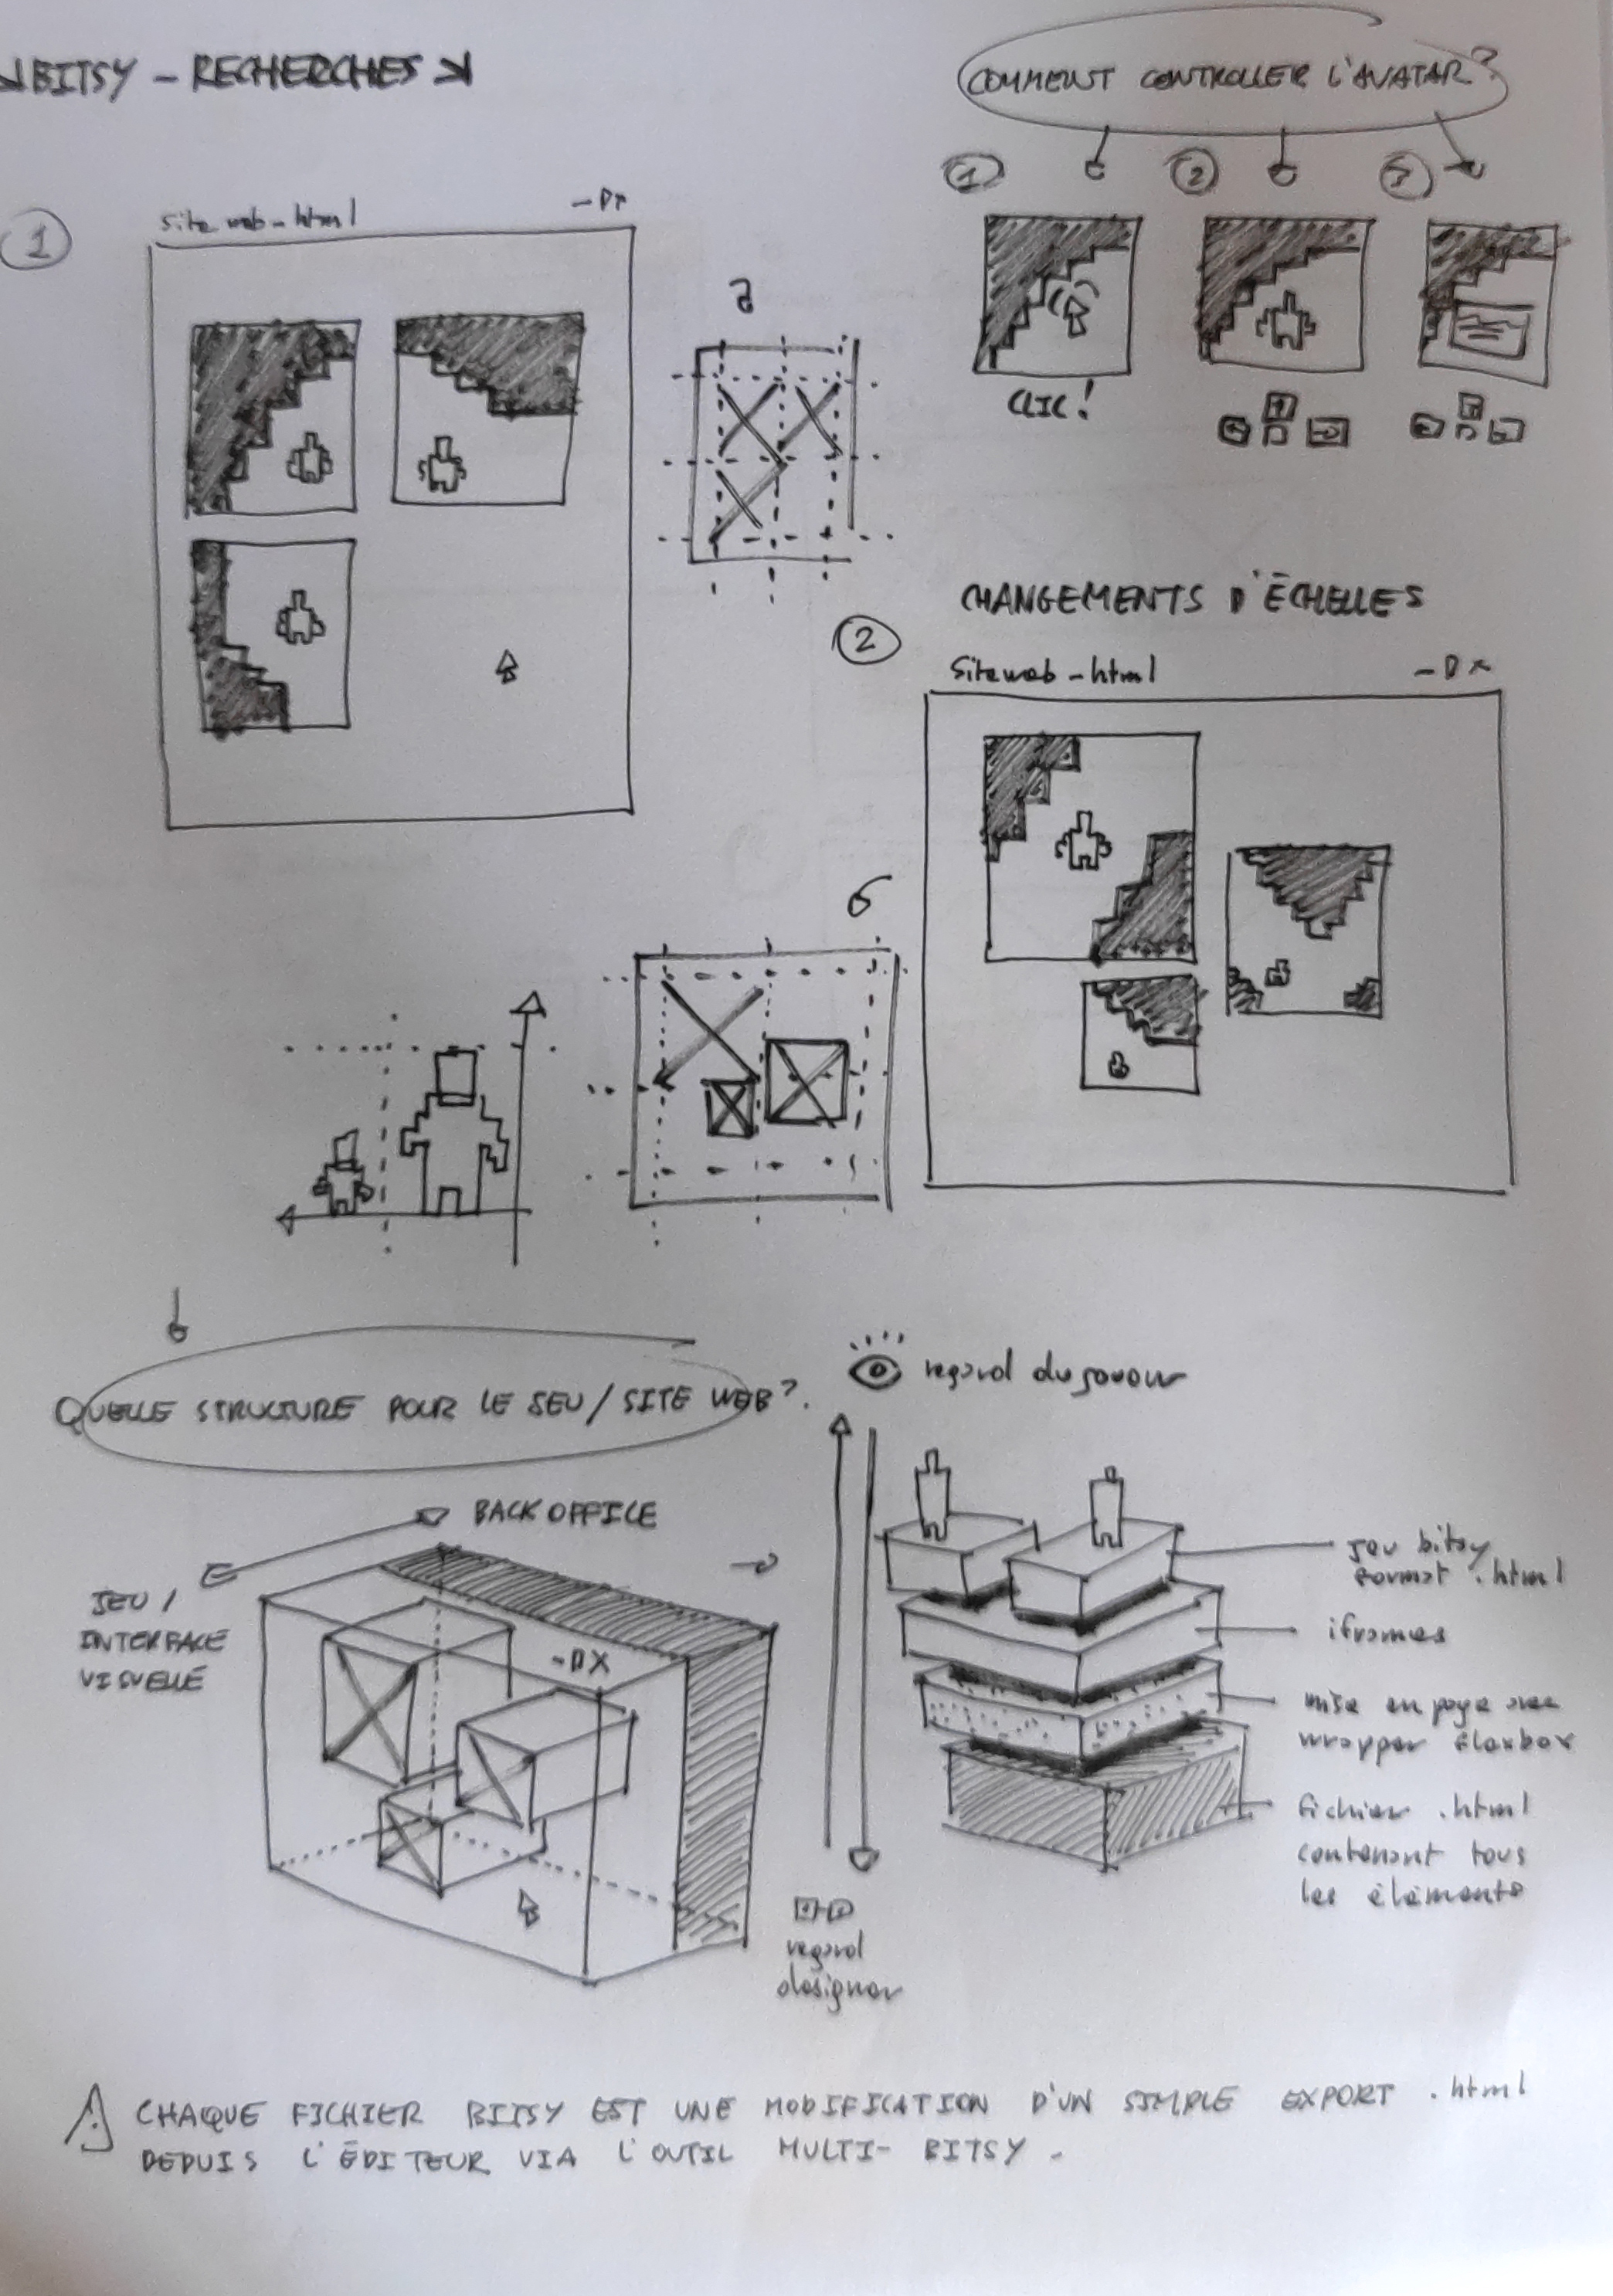 BITSY - RECHERCHES
COMMENT CONTROLLER L'AVATAR?
1 2 3
1
site web - html
a
CLIC!
CHANGEMENTS D'ÉCHELLES
2
Site web - html
QUELLE STRUCTURE POUR LE JEU / SITE WEB?
regard du joueur
BACK OFFICE
JEU /
INTERFACE
VISUELLE
jeu bitsy
format .html
iframes
mise en page avec
wrapper flexbox
fichier .html
contenant tous
les éléments
regard
designer
CHAQUE FICHIER BITSY EST UNE MODIFICATION D'UN SIMPLE EXPORT .html
DEPUIS L'ÉDITEUR VIA L'OUTIL MULTI-BITSY.